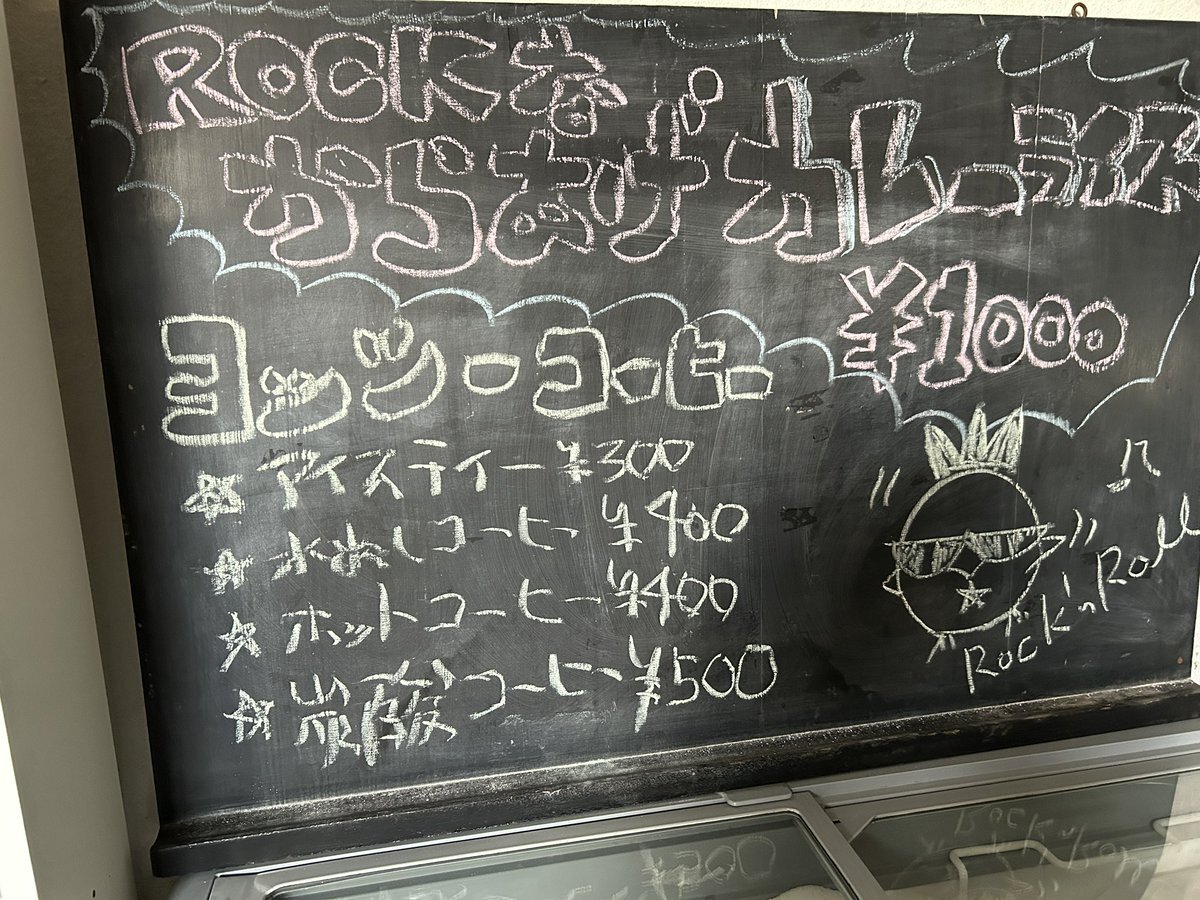 ROCKな
からあげカレー
¥1000
ヨッシーコーヒー
アイスティー ¥300
水出しコーヒー ¥400
ホットコーヒー ¥400
炭酸コーヒー ¥500
Rock'n Roll